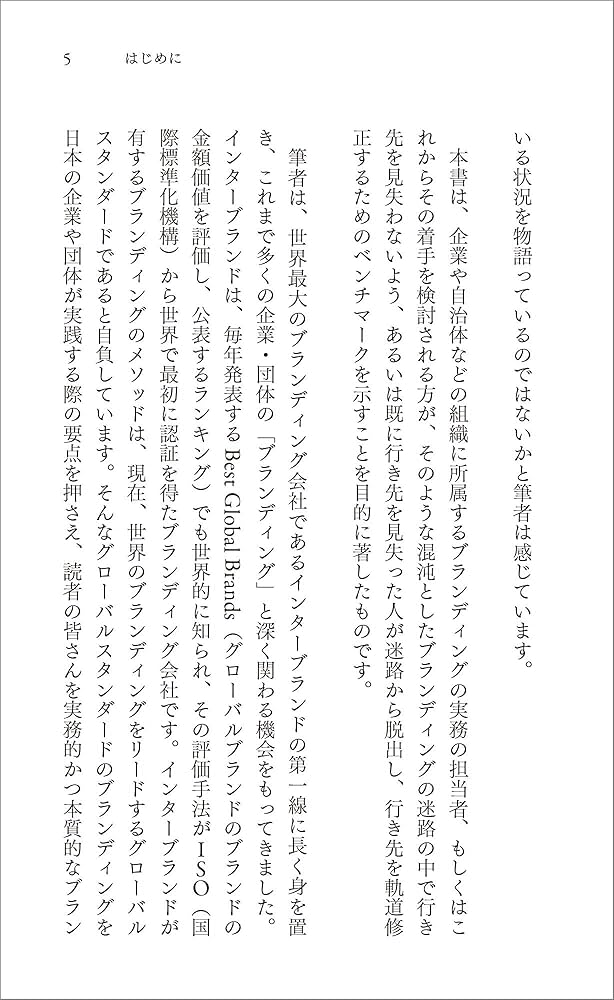 5 はじめに
いる状況を物語っているのではないかと筆者は感じています。
本書は、企業や自治体などの組織に所属するブランディングの実務の担当者、もしくはこ
れからその着手を検討される方が、そのような混沌としたブランディングの迷路の中で行き
先を見失わないよう、あるいは既に行き先を見失った人が迷路から脱出し、行き先を軌道修
正するためのベンチマークを示すことを目的に著したものです。
筆者は、世界最大のブランディング会社であるインターブランドの第一線に長く身を置
き、これまで多くの企業・団体の「ブランディング」と深く関わる機会をもってきました。
インターブランドは、毎年発表する Best Global Brands（グローバルブランドのブランドの
金額価値を評価し、公表するランキング）でも世界的に知られ、その評価手法がISO（国
際標準化機構）から世界で最初に認証を得たブランディング会社です。インターブランドが
有するブランディングのメソッドは、現在、世界のブランディングをリードするグローバル
スタンダードであると自負しています。そんなグローバルスタンダードのブランディングを
日本の企業や団体が実践する際の要点を押さえ、読者の皆さんを実務的かつ本質的なブラン